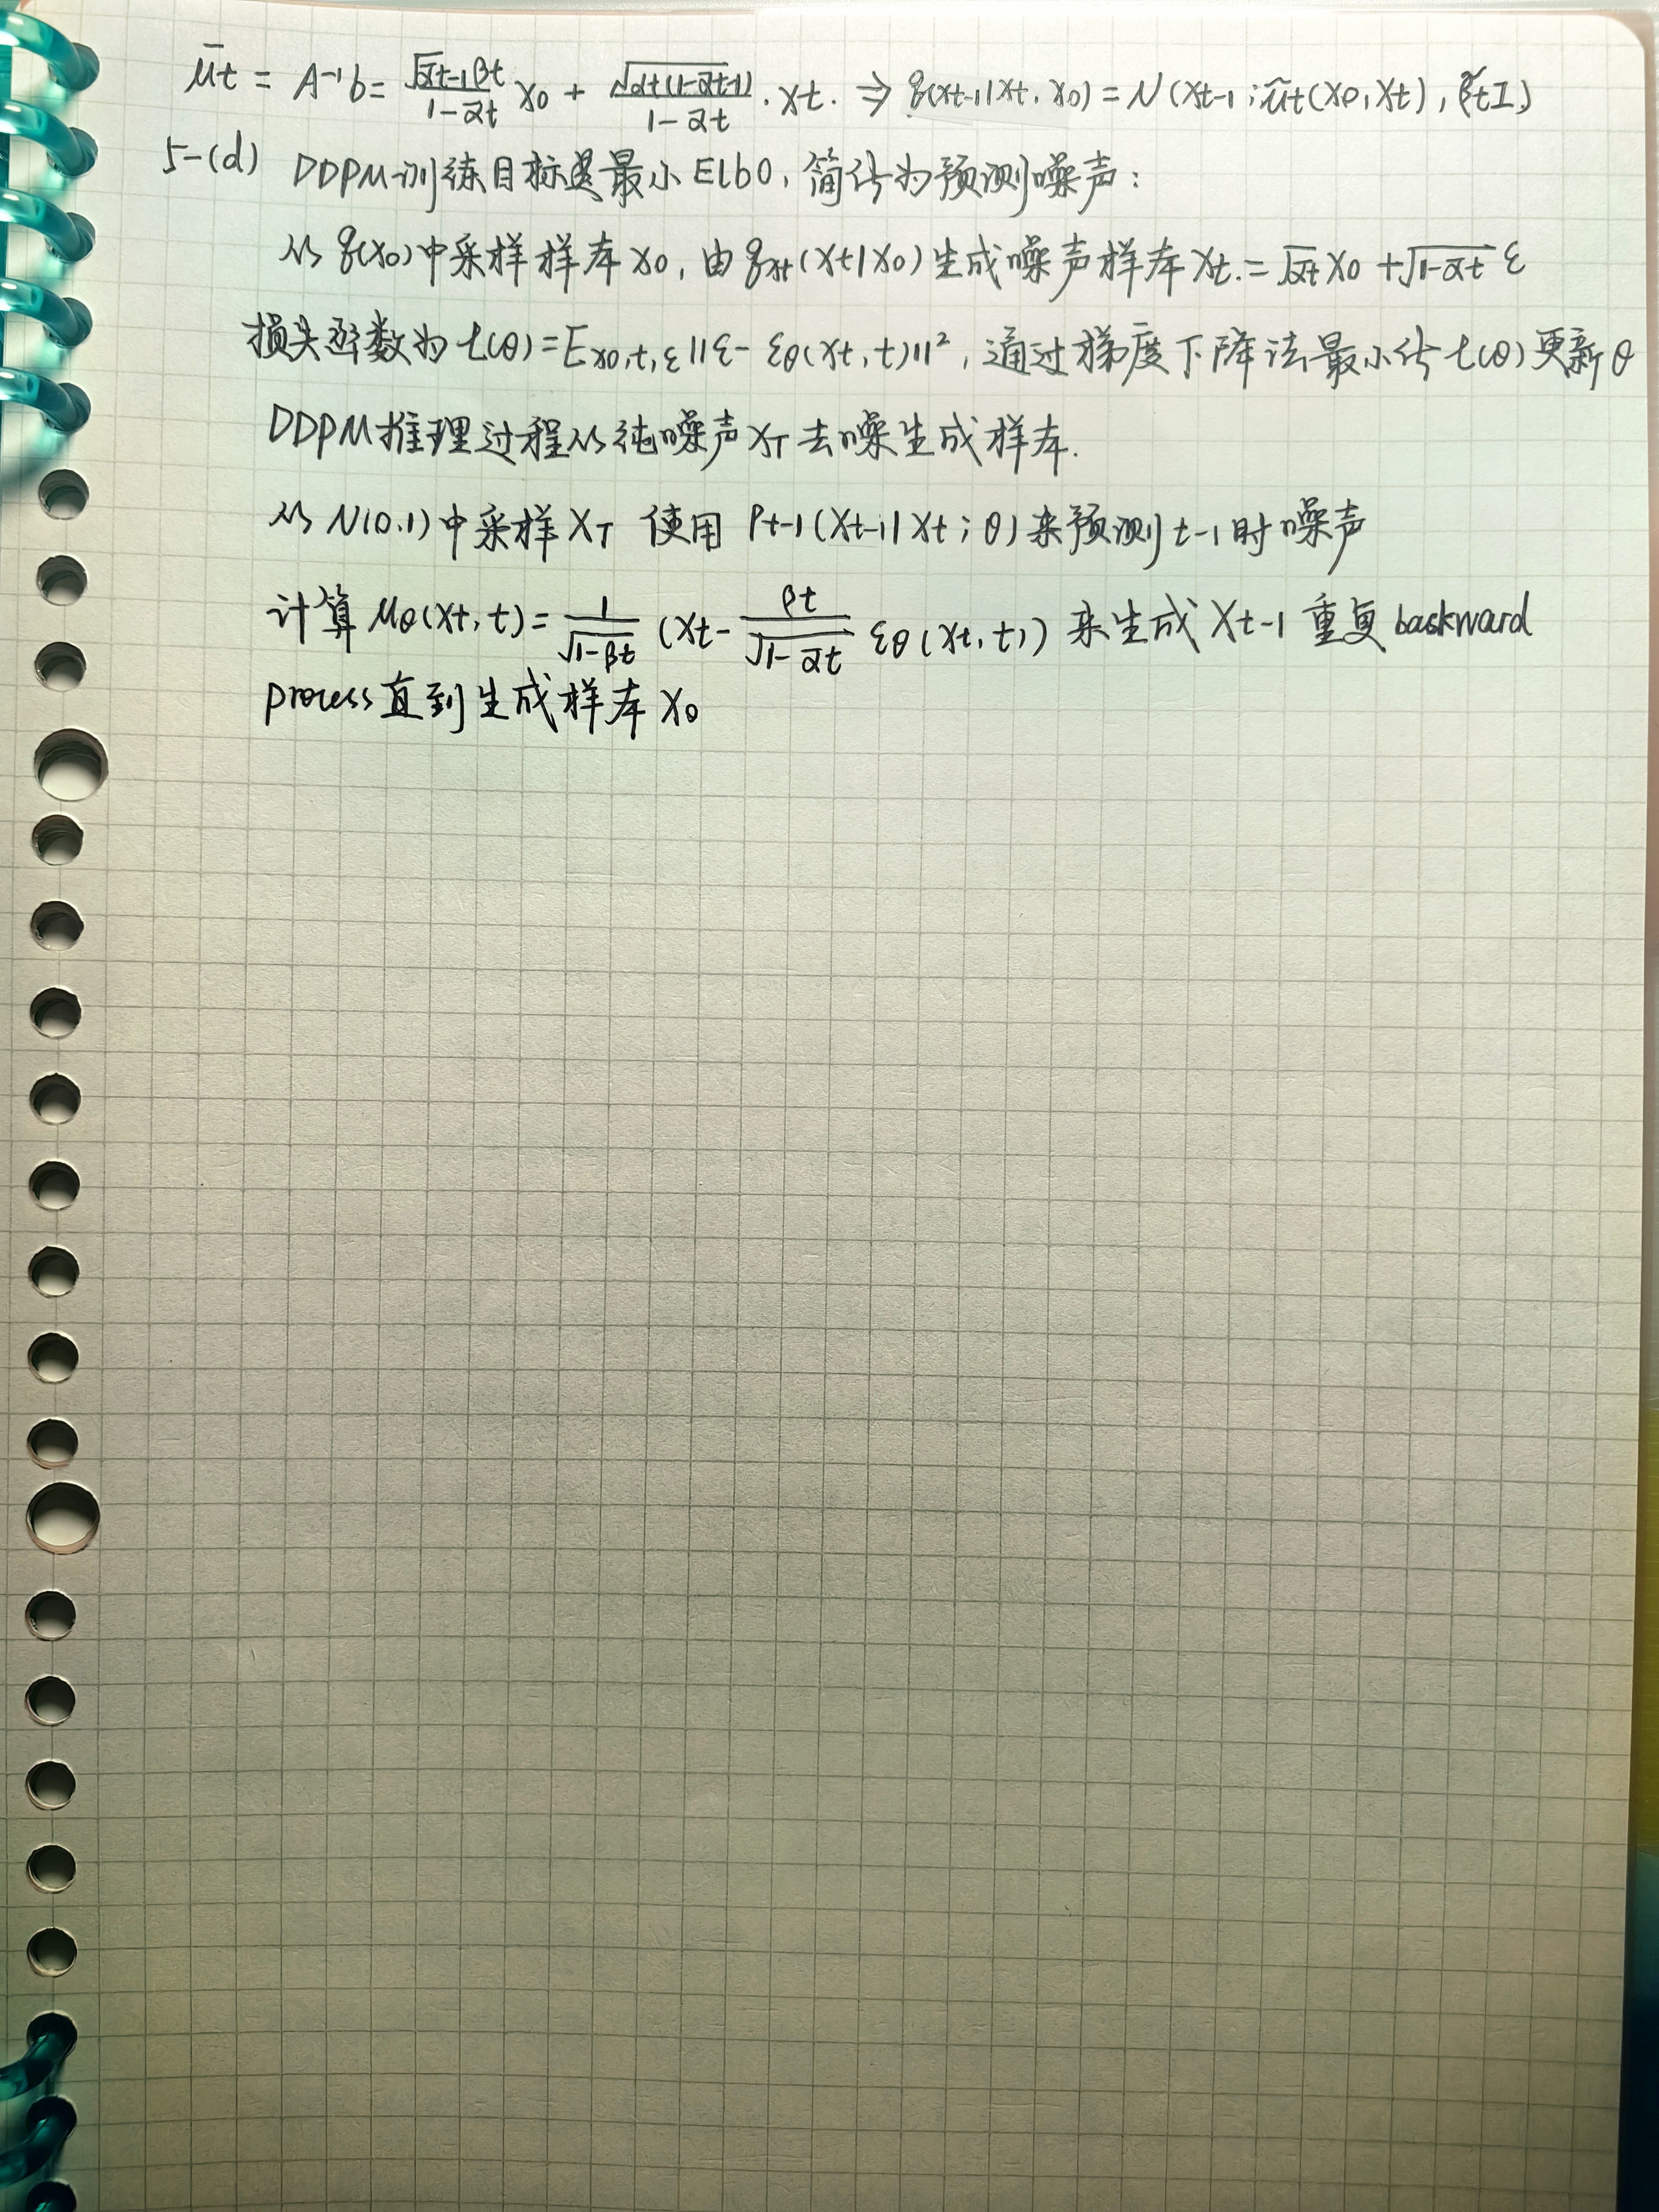 μ̄t = A⁻¹b = √ᾱt-1 βt / 1-ᾱt x0 + √αt(1-ᾱt-1) / 1-ᾱt · xt. ⇒ q(xt-1|xt, x0) = N(xt-1; μ̃t(x0, xt), β̃tI)
5-(d) DDPM训练目标是最小ELBO, 简化为预测噪声:
从q(x0)中采样样本x0, 由qt(xt|x0)生成噪声样本xt = √ᾱt x0 + √1-ᾱt ε
损失函数为L(θ)=Ex0,t,ε||ε-εθ(xt,t)||², 通过梯度下降法最小化L(θ)更新θ
DDPM推理过程从纯噪声xT去噪生成样本.
从N(0,1)中采样XT 使用Pt-1(Xt-1|Xt;θ)来预测t-1时噪声
计算μθ(xt,t)= 1/√1-βt (xt - βt/√1-ᾱt εθ(xt,t)) 来生成Xt-1 重复backward
process直到生成样本x0